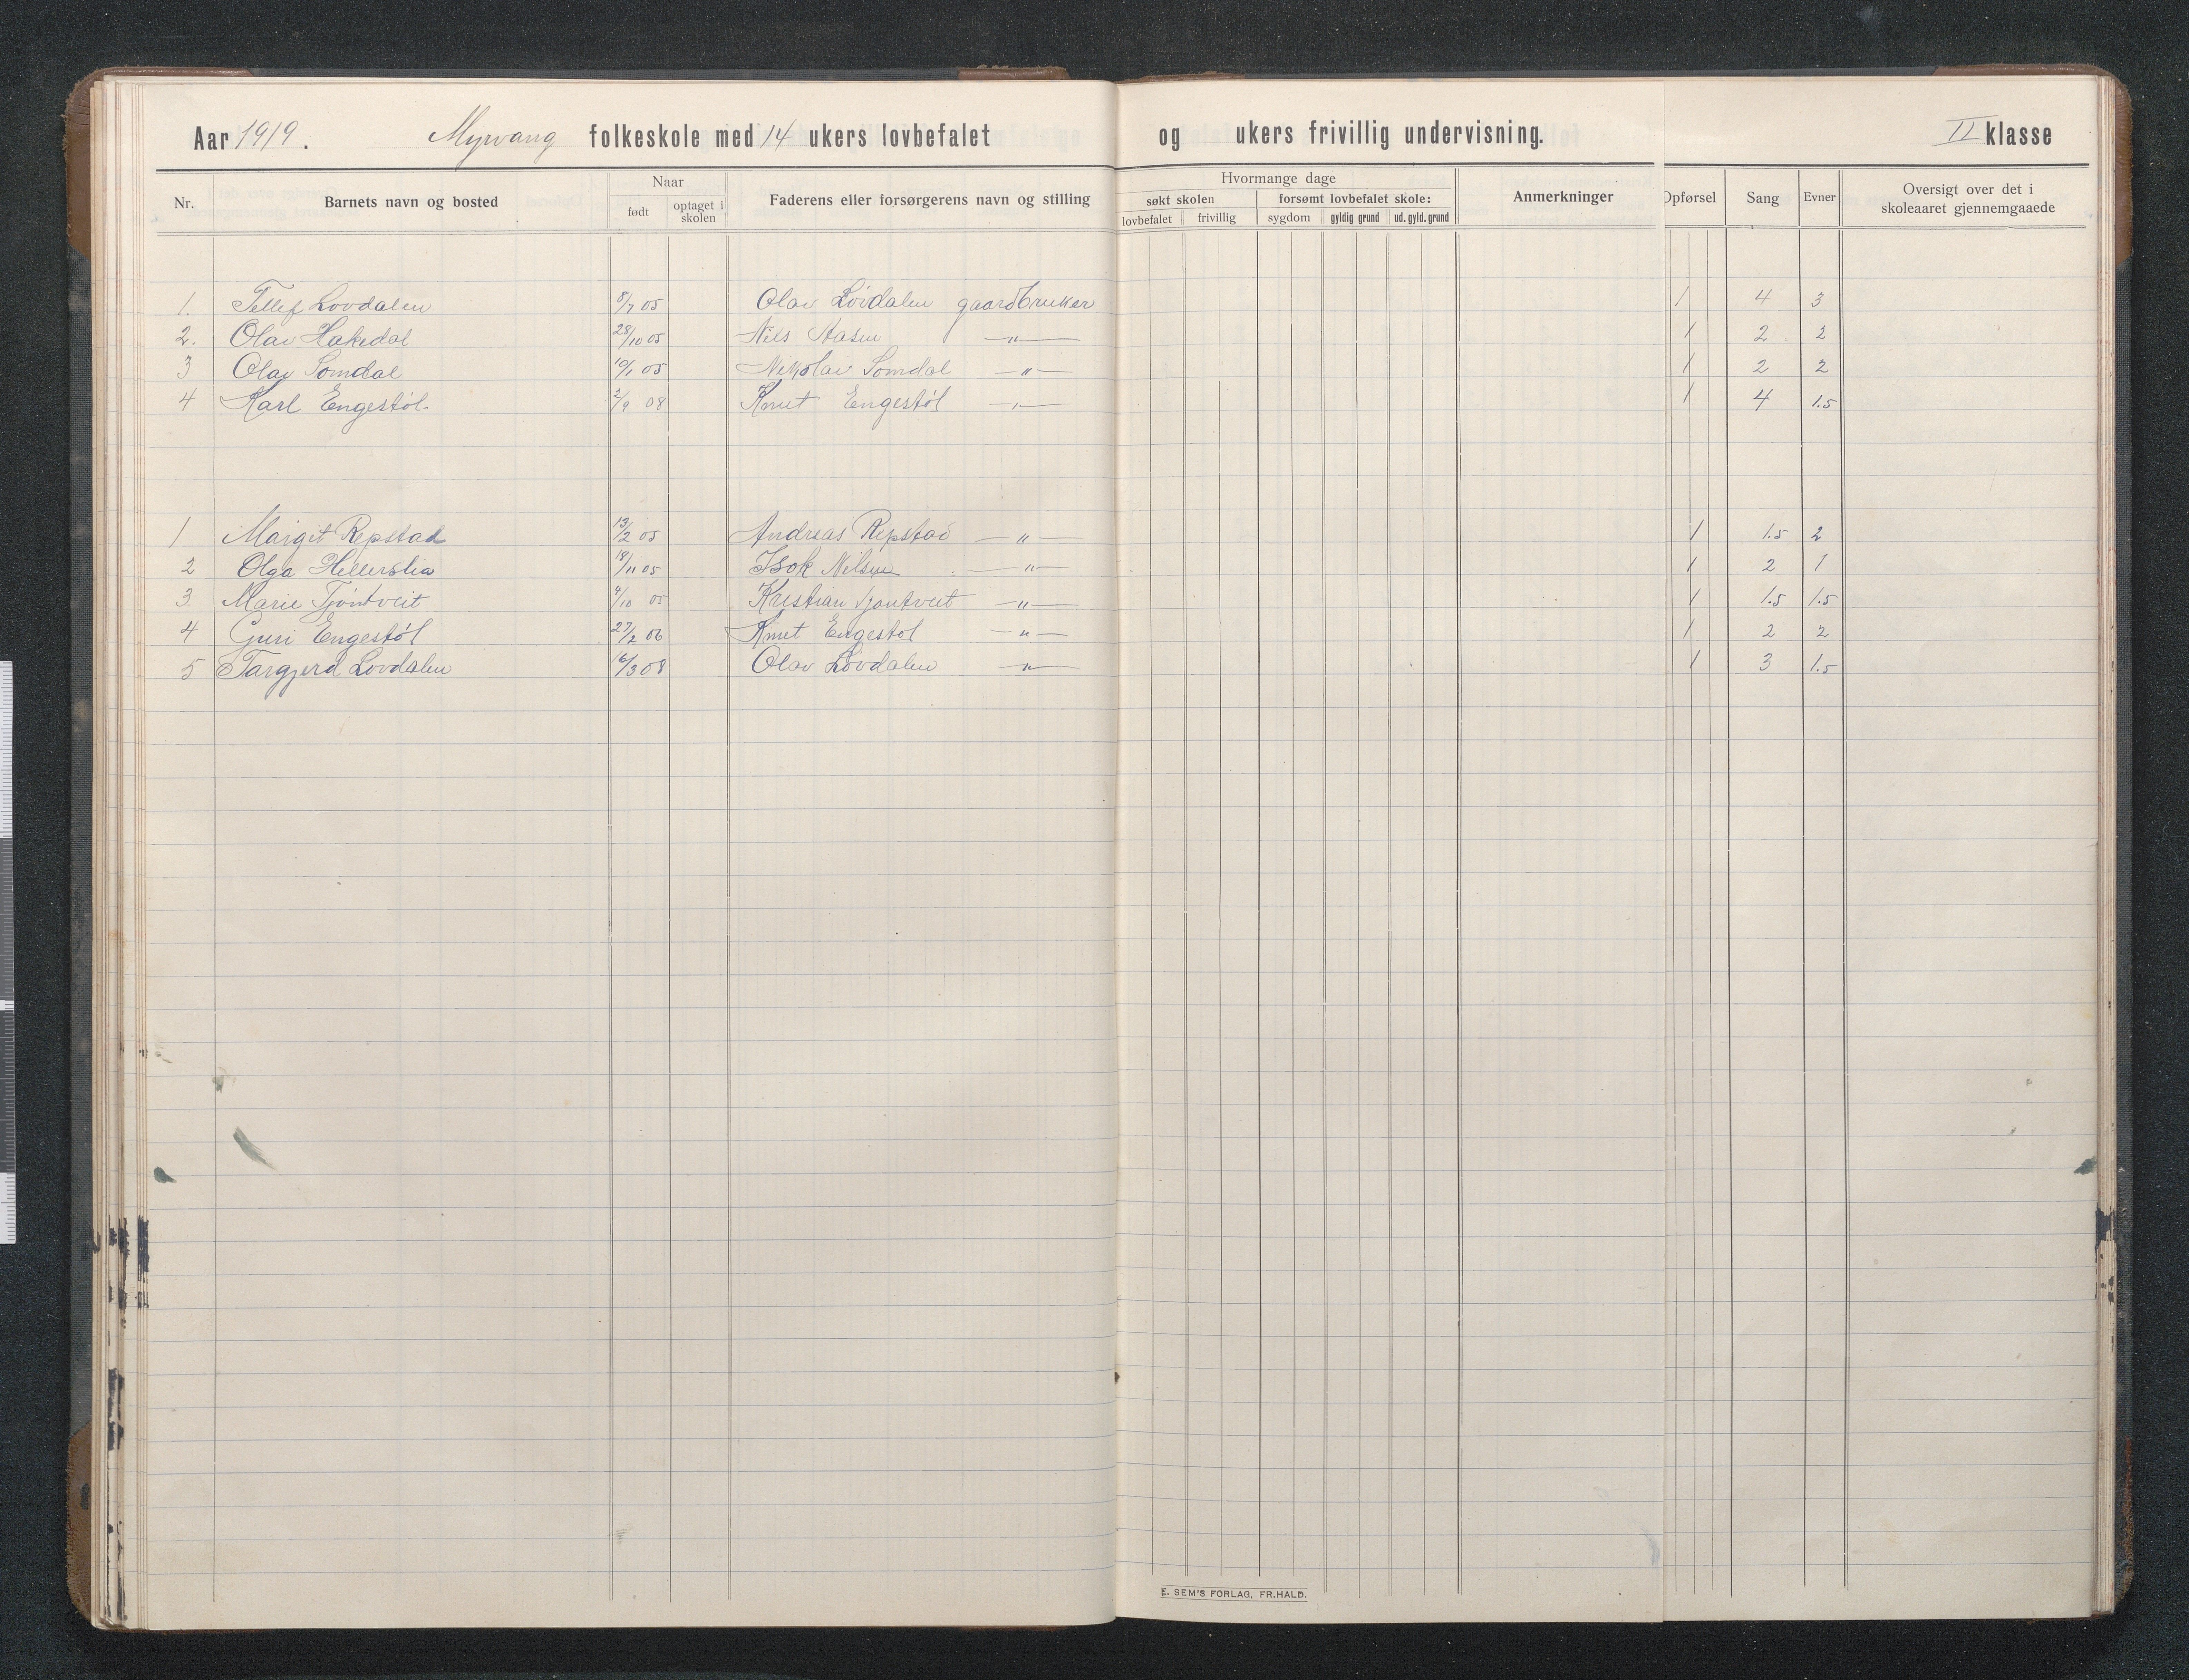 Aar 1919. Myrvang folkeskole med 14 ukers lovbefalet og ukers frivillig undervisning. II klasse
Nr. Barnets navn og bosted Naar Faderens eller forsørgerens navn og stilling Hvormange dage Anmerkninger Opførsel Sang Evner Oversigt over det i skoleaaret gjennemgaaede
født optaget i skolen søkt skolen forsømt lovbefalet skole:
lovbefalet frivillig sygdom gyldig grund ud. gyld. grund
1. Tellef Lovdalen 8/7 05 Olav Lövdalen gaardbruker 1 4 3
2. Olav Hakedal 28/10 05 Nils Aasen —"— 1 2 2
3 Olav Somdal 10/1 05 Nikolai Somdal —"— 1 2 2
4 Karl Engestöl 2/9 08 Knut Engestöl —"— 1 4 1.5
1 Margit Repstad 13/2 05 Andreas Repstad —"— 1 1.5 2
2 Olga Hellerslia 18/11 05 Isok Nilsen —"— 1 2 1
3 Marie Tjöntveit 4/10 05 Kristian Tjontveit —"— 1 1.5 1.5
4 Guri Engestöl 27/2 06 Knut Engestol —"— 1 2 2
5 Targjerd Lovdalen 16/3 08 Olav Lövdalen —"— 1 3 1.5
E. SEM'S FORLAG, FR.HALD.